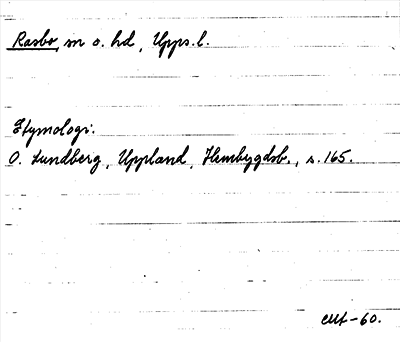 Rasbo, sn o. hd, Upps. l.
Etymologi:
O. Lundberg, Uppland, Hembygdsb., s. 165.
-60.